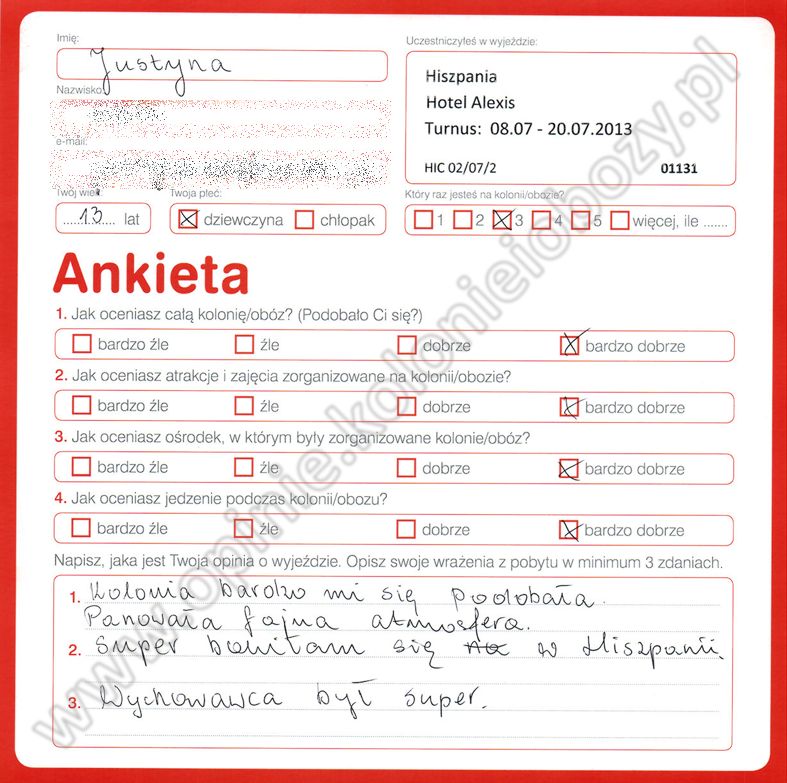 Imię:
Justyna
Nazwisko:
e-mail:
Twój wiek
13 lat
Twoja płeć:
dziewczyna chłopak
Uczestniczyłeś w wyjeździe:
Hiszpania
Hotel Alexis
Turnus: 08.07 - 20.07.2013
HIC 02/07/2 01131
Który raz jesteś na kolonii/obozie?
1 2 3 4 5 więcej, ile .......
Ankieta
1. Jak oceniasz całą kolonię/obóz? (Podobało Ci się?)
bardzo źle źle dobrze bardzo dobrze
2. Jak oceniasz atrakcje i zajęcia zorganizowane na kolonii/obozie?
bardzo źle źle dobrze bardzo dobrze
3. Jak oceniasz ośrodek, w którym były zorganizowane kolonie/obóz?
bardzo źle źle dobrze bardzo dobrze
4. Jak oceniasz jedzenie podczas kolonii/obozu?
bardzo źle źle dobrze bardzo dobrze
Napisz, jaka jest Twoja opinia o wyjeździe. Opisz swoje wrażenia z pobytu w minimum 3 zdaniach.
1. Kolonia bardzo mi się podobała.
Panowała fajna atmosfera.
2. Super bawiłam się na w Hiszpanii.
3. Wychowawca był super.
www.opinie.kolonieiobozy.pl